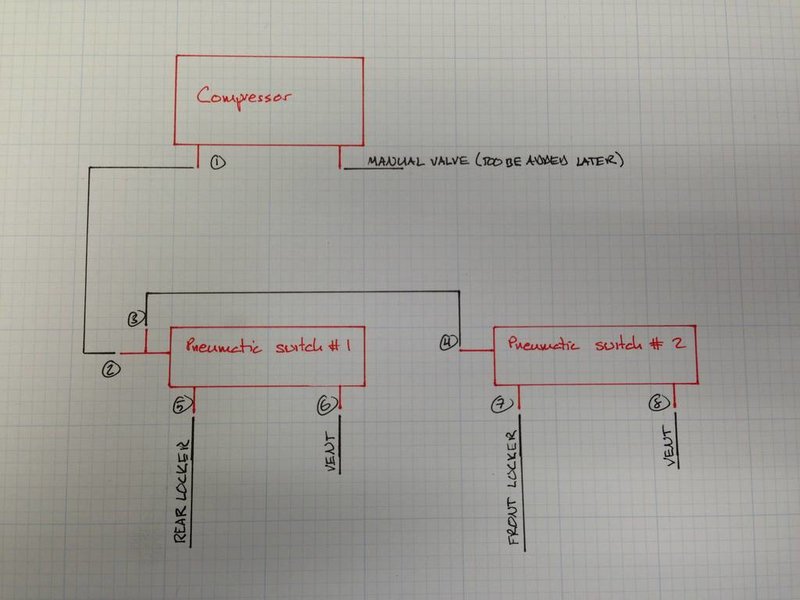 Compressor
①
MANUAL VALVE (TOO BE ADDED LATER)
③
②
Pneumatic switch # 1
④
Pneumatic switch # 2
⑤
⑥
⑦
⑧
REAR LOCKER
VENT
FRONT LOCKER
VENT